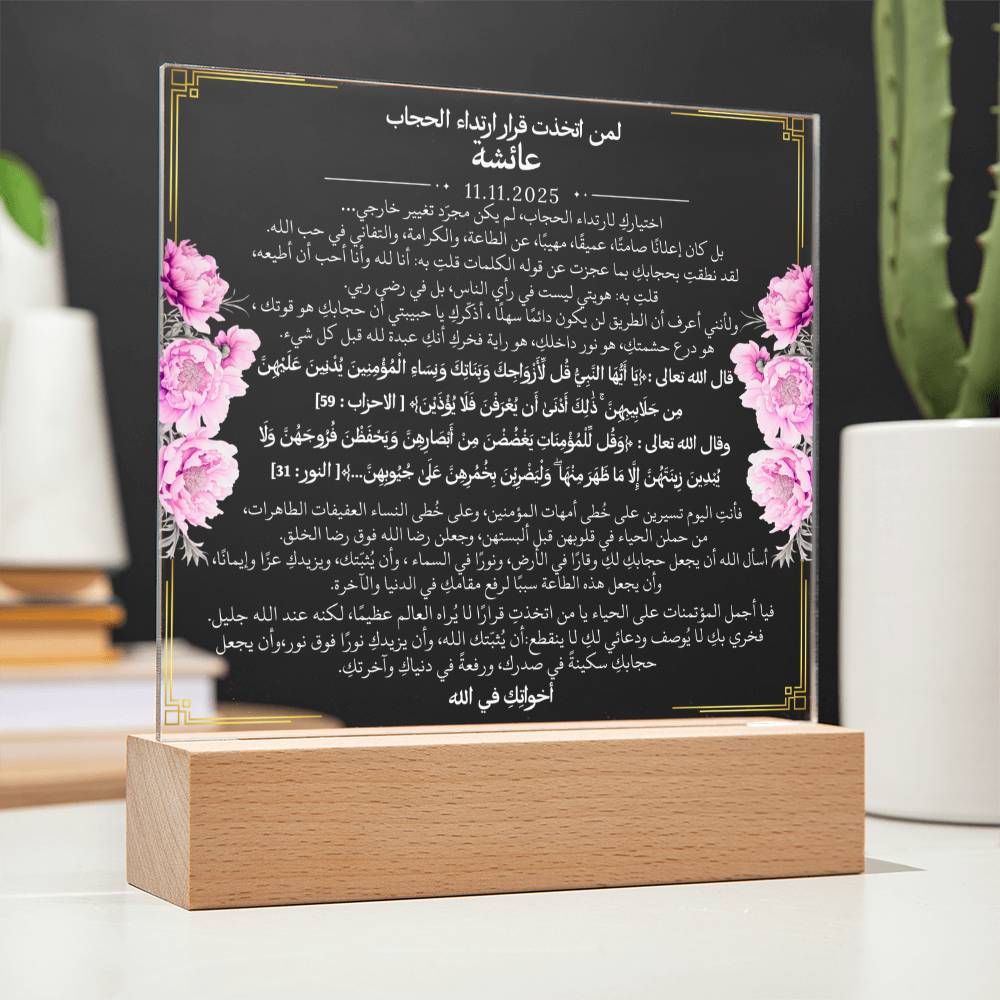 لمن اتخذت قرار ارتداء الحجاب
عائشة
11.11.2025
اختياركِ لارتداء الحجاب، لم يكن مجرّد تغيير خارجي...
بل كان إعلانًا صامتًا، عميقًا، مهيبًا، عن الطاعة، والكرامة، والتفاني في حب الله.
لقد نطقتِ بحجابكِ بما عجزت عن قوله الكلمات قلتِ به: أنا لله وأنا أحب أن أطيعه،
قلتِ به: هويتي ليست في رأي الناس، بل في رضى ربي.
ولأنني أعرف أن الطريق لن يكون دائمًا سهلًا ، أذكّركِ يا حبيبتي أن حجابكِ هو قوتك ،
هو درع حشمتكِ، هو نور داخلكِ، هو راية فخركِ أنكِ عبدة لله قبل كل شيء.
قال الله تعالى :﴿يَا أَيُّهَا النَّبِيُّ قُل لِّأَزْوَاجِكَ وَبَنَاتِكَ وَنِسَاءِ الْمُؤْمِنِينَ يُدْنِينَ عَلَيْهِنَّ
مِن جَلَابِيبِهِنَّ ۚ ذَٰلِكَ أَدْنَىٰ أَن يُعْرَفْنَ فَلَا يُؤْذَيْنَ﴾ [ الاحزاب : 59]
وقال الله تعالى : ﴿وَقُل لِّلْمُؤْمِنَاتِ يَغْضُضْنَ مِنْ أَبْصَارِهِنَّ وَيَحْفَظْنَ فُرُوجَهُنَّ وَلَا
يُبْدِينَ زِينَتَهُنَّ إِلَّا مَا ظَهَرَ مِنْهَا ۖ وَلْيَضْرِبْنَ بِخُمُرِهِنَّ عَلَىٰ جُيُوبِهِنَّ...﴾[ النور: 31]
فأنتِ اليوم تسيرين على خُطى أمهات المؤمنين، وعلى خُطى النساء العفيفات الطاهرات،
من حملن الحياء في قلوبهن قبل ألبستهن، وجعلن رضا الله فوق رضا الخلق.
أسأل الله أن يجعل حجابكِ لكِ وقارًا في الأرض، ونورًا في السماء ، وأن يُثبّتك، ويزيدكِ عزًا وإيمانًا،
وأن يجعل هذه الطاعة سببًا لرفع مقامكِ في الدنيا والآخرة.
فيا أجمل المؤتمنات على الحياء يا من اتخذتِ قرارًا لا يُراه العالم عظيمًا، لكنه عند الله جليل.
فخري بكِ لا يُوصف ودعائي لكِ لا ينقطع:أن يُثبّتك الله، وأن يزيدكِ نورًا فوق نور،وأن يجعل
حجابكِ سكينةً في صدرك، ورفعةً في دنياكِ وآخرتكِ.
أخواتكِ في الله